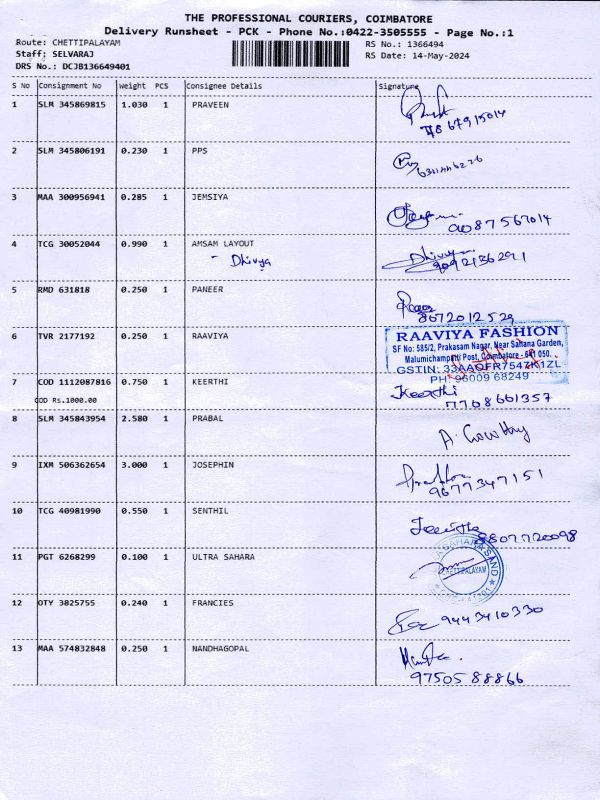 THE PROFESSIONAL COURIERS, COIMBATORE
Delivery Runsheet - PCK - Phone No.:0422-3505555 - Page No.:1
Route: CHETTIPALAYAM
RS No.: 1366494
Staff: SELVARAJ
RS Date: 14-May-2024
DRS No.: DCJB136649401
S No Consignment No Weight PCS Consignee Details Signature
1 SLM 345869815 1.030 1 PRAVEEN
2 SLM 345806191 0.230 1 PPS
3 MAA 300956941 0.285 1 JEMSIYA
4 TCG 30052044 0.990 1 AMSAM LAYOUT
- Dhivya
Dhivya
5 RMD 631818 0.250 1 PANEER
8072012529
RAAVIYA FASHION
6 TVR 2177192 0.250 1 RAAVIYA
SF No: 585/2, Prakasam Nagar, Near Sahana Garden,
Malumichampatti Post, Coimbatore - 641 050.
GSTIN: 33AAQFR7547K1ZL
PH: 96009 68249
7 COD 1112087816 0.750 1 KEERTHI Keerthi
COD Rs.1000.00
7708661357
8 SLM 345843954 2.580 1 PRABAL
9 IXM 506362654 3.000 1 JOSEPHIN
9677347151
10 TCG 40981990 0.550 1 SENTHIL
8807720098
11 PGT 6268299 0.100 1 ULTRA SAHARA
CHETTIPALAYAM
12 OTY 3825755 0.240 1 FRANCIES
9443410330
13 MAA 574832848 0.250 1 NANDHAGOPAL
9750588866